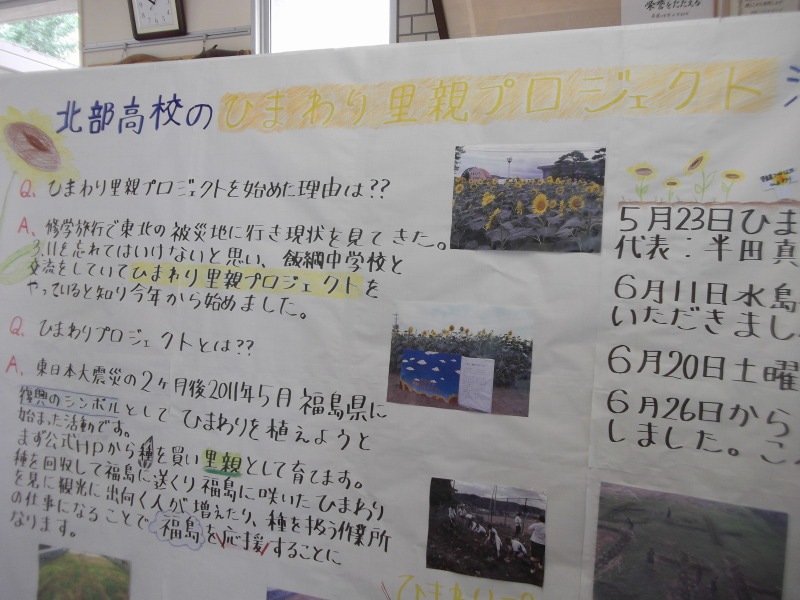 北部高校のひまわり里親プロジェクト
Q. ひまわり里親プロジェクトを始めた理由は??
A. 修学旅行で東北の被災地に行き現状を見てきた。
3.11を忘れてはいけないと思い、飯綱中学校と
交流をしていてひまわり里親プロジェクトを
やっていると知り今年から始めました。
Q. ひまわりプロジェクトとは??
A. 東日本大震災の2ヶ月後2011年5月 福島県に
復興のシンボルとして ひまわりを植えようと
始まった活動です。
まず公式HPから種を買い里親として育てます。
種を回収して福島に送くり福島に咲いたひまわり
を見に観光に出向く人が増えたり、種を扱う作業所
の仕事になることで 福島を応援することに
なります。
5月23日ひま
代表:半田真
6月11日水島
いただきまし
6月20日土曜
6月26日から
しました。こ